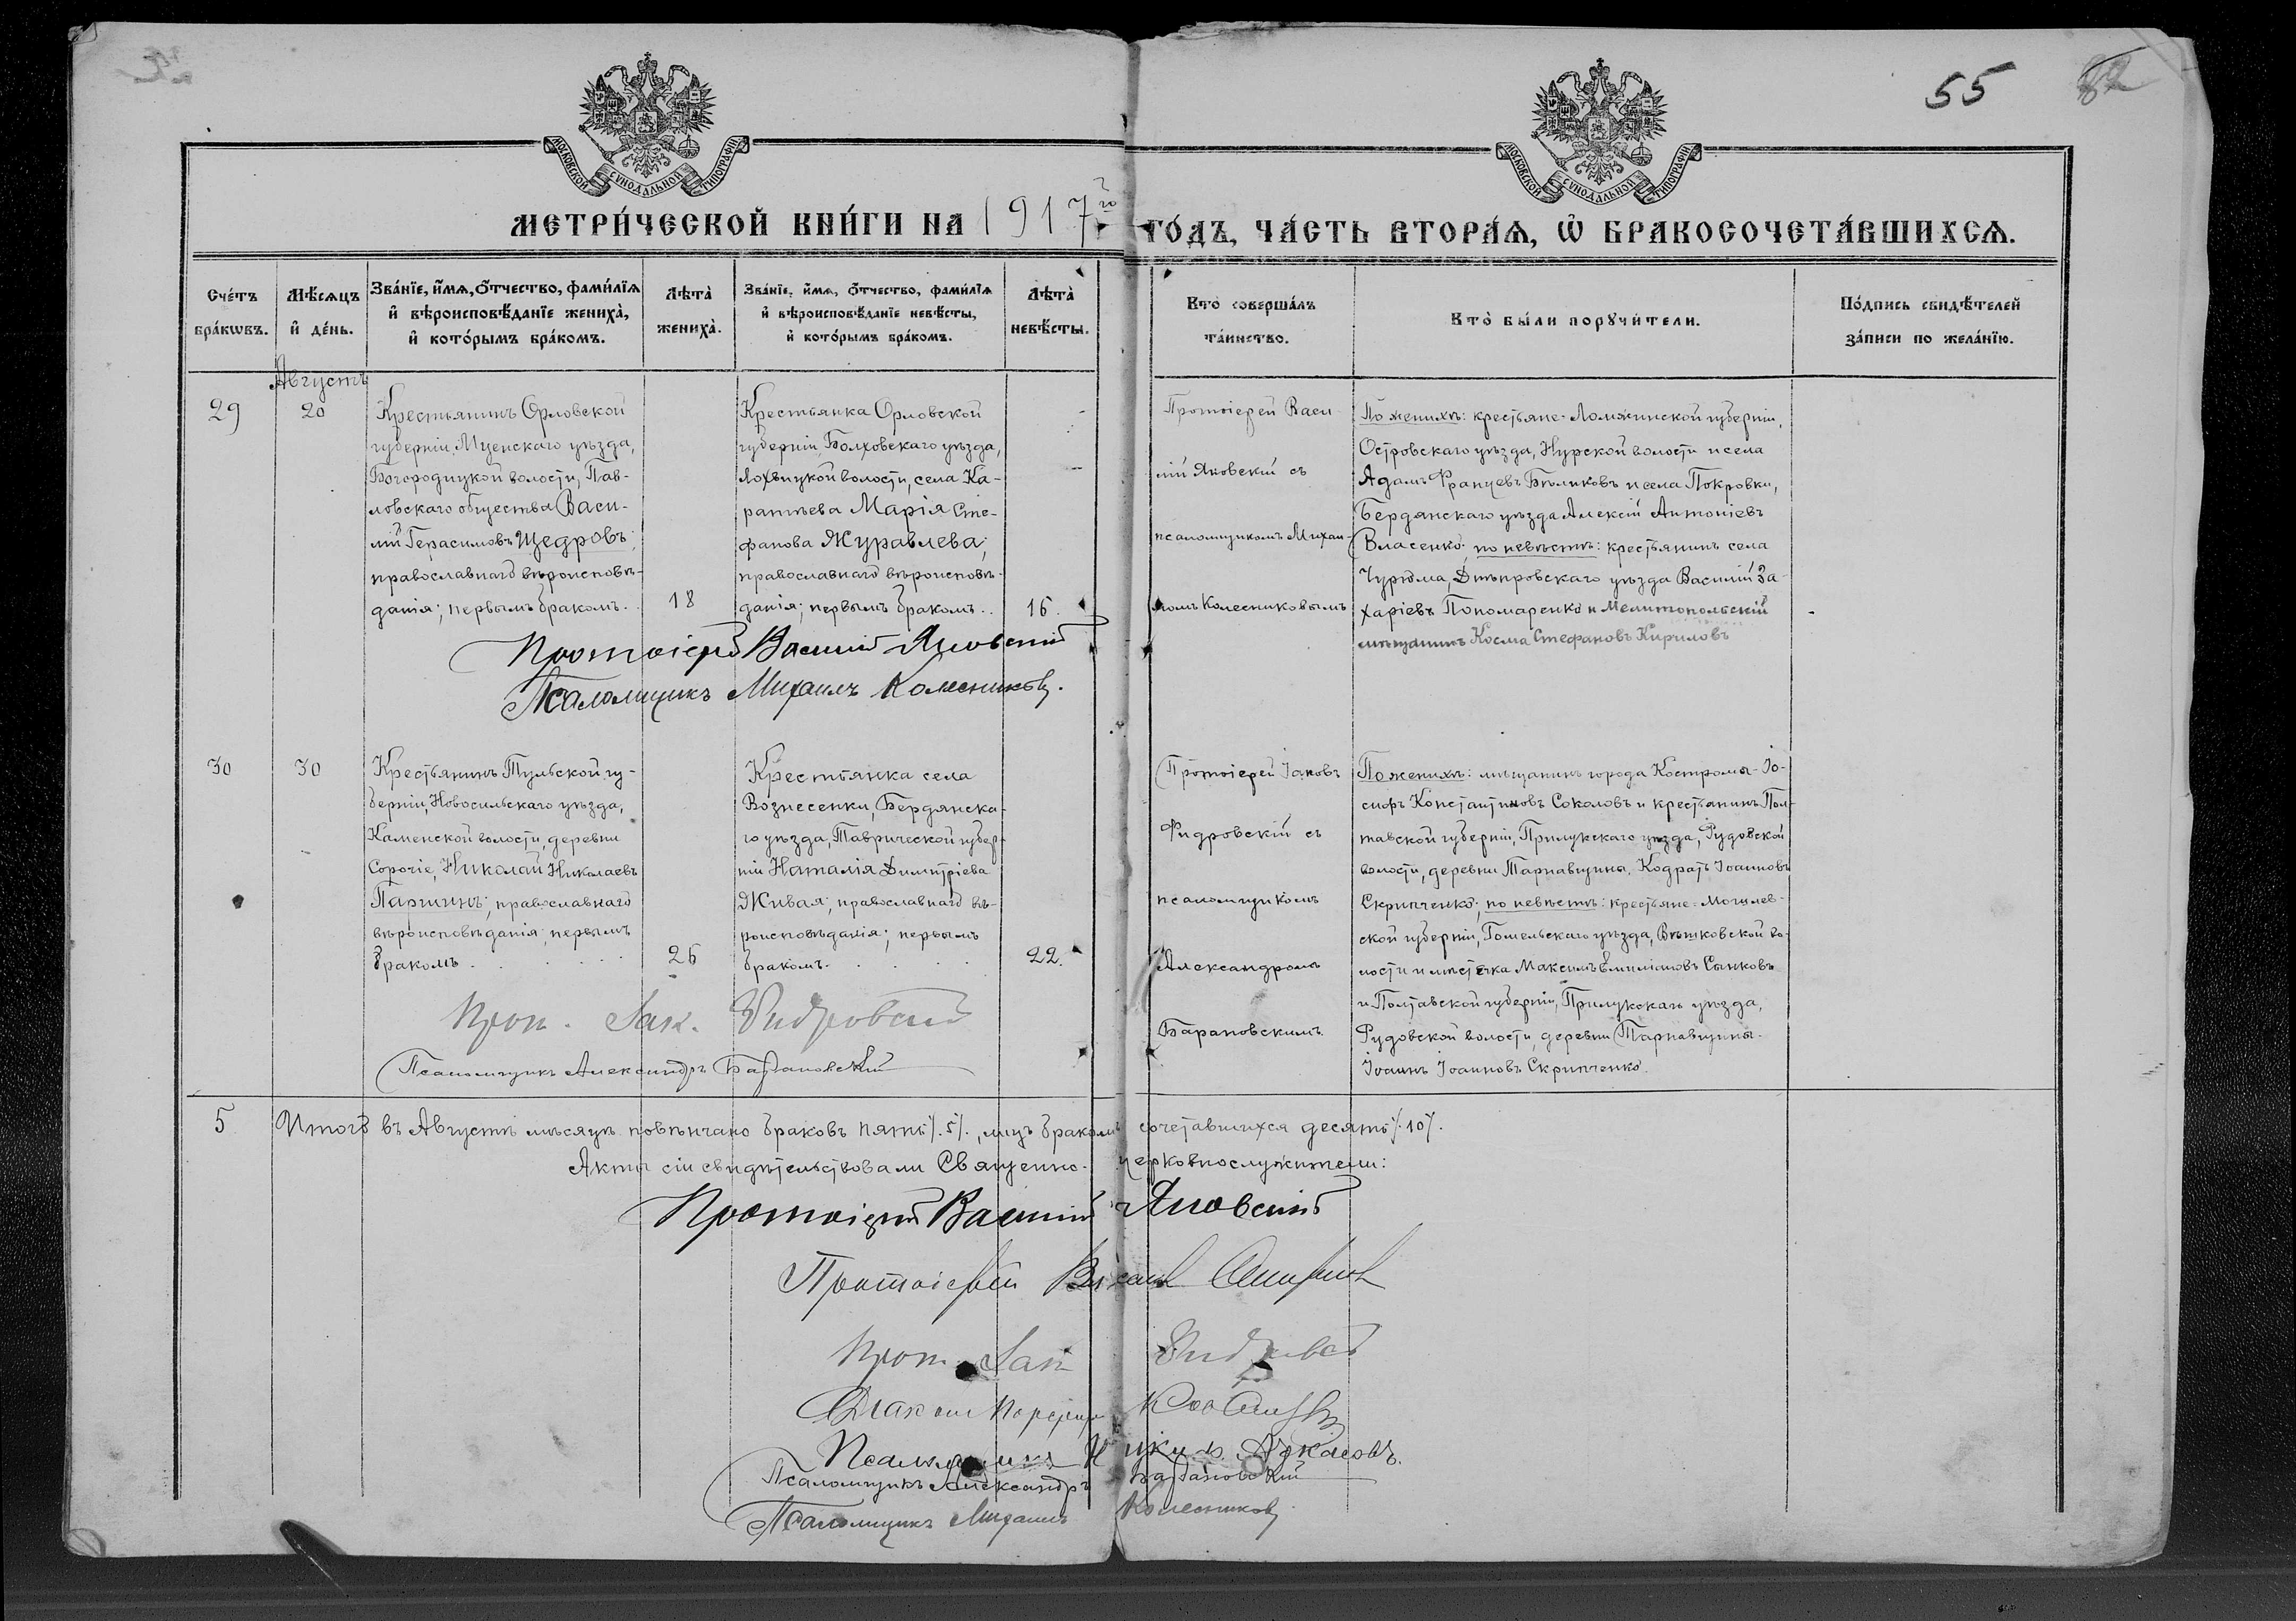 55
МОСКОВСКОЙ СѴНОДАЛЬНОЙ ТИПОГРАФІИ
МОСКОВСКОЙ СѴНОДАЛЬНОЙ ТИПОГРАФІИ
МЕТРИ́ЧЕСКОЙ КНИ́ГИ НА 1917го ГО́ДЪ, ЧА́СТЬ ВТОРА́Ѧ, Ѡ БРАКОСОЧЕТА́ВШИХСѦ.
Сче́тъ бра́кωвъ.
Мѣ́сѧцъ и҆ де́нь.
Зва́нїе, и҆́мѧ, ѻ҆́тчество, фами́лїѧ и҆ вѣроисповѣ́данїе жениха̀, и҆ кото́рымъ бра́комъ.
Лѣта̀ жениха̀.
Зва́нїе, и҆́мѧ, ѻ҆́тчество, фами́лїѧ и҆ вѣроисповѣ́данїе невѣ́сты, и҆ кото́рымъ бра́комъ.
Лѣта̀ невѣ́сты.
Кто̀ соверша́лъ та́инство.
Кто̀ бы́ли порꙋчи́тели.
По́дпись свидѣ́телей за́писи по жела́нїю.
Августъ
29
20
Крестьянинъ Орловской
губерніи, Мценскаго уѣзда,
Богородицкой волости, Пав-
ловскаго общества Васи-
лій Герасимовъ Щедровъ;
православнаго вѣроисповѣ-
данія; первымъ бракомъ.
18
Крестьянка Орловской
губерніи, Болховскаго уѣзда,
Лохвицкой волости, села Ка-
раптьева Марія Сте-
фанова Журавлева;
православнаго вѣроисповѣ-
данія; первымъ бракомъ..
16.
Протоіерей Васи-
лій Яновскій съ
псаломщикомъ Михаи-
ломъ Колесниковымъ
По женихѣ: крестьяне-Ломжинской губерніи,
Островскаго уѣзда, Нурской волости и села
Адамъ Францевъ Бѣликовъ и села Покровки,
Бердянскаго уѣзда Алексій Антоніевъ
Власенко; по невѣстѣ: крестьянинъ села
Чурюма, Днѣпровскаго уѣзда Василій За-
харіевъ Пономаренко и Мелитопольскій
мѣщанинъ Косма Стефановъ Кириловъ
Протоіерей Василій Яновскій
Псаломщикъ Михаилъ Колесниковъ.
30
30
Крестьянинъ Тульской гу-
берніи, Новосильскаго уѣзда,
Каменской волости, деревни
Сорочіе, Николай Николаевъ
Паршинъ; православнаго
вѣроисповѣданія; первымъ
бракомъ.
26
Крестьянка села
Вознесенки, Бердянска-
го уѣзда, Таврической губер-
ніи Наталія Димитріева
Живая; православнаго вѣ-
роисповѣданія; первымъ
бракомъ.
22.
Протоіерей Іаковъ
Фидровскій съ
псаломщикомъ
Александромъ
Барановскимъ.
По женихѣ: мѣщанинъ города Костромы-Іо-
сифъ Константиновъ Соколовъ и крестьянинъ Пол-
тавской губерніи, Прилукскаго уѣзда, Рудовской
волости, деревни Тарнавщины, Кодратъ Іоанновъ
Скрипченко; по невѣстѣ: крестьяне-Могилев-
ской губерніи, Гомельскаго уѣзда, Вѣтковской во-
лости и мѣстечка Максимъ Емиліановъ Сычковъ
и Полтавской губерніи, Прилукскаго уѣзда,
Рудовской волости, деревни Тарнавщины-
Іоаннъ Іоанновъ Скрипченко.
Прот. Іак. Фидровскій
Псаломщикъ Александръ Барановскій
5
Итого въ Августѣ мѣсяцѣ повѣнчано браковъ пять /.5/., лицъ бракомъ сочетавшихся десять /.10/.
Акты сіи свидѣтельствовали Священно-церковнослужители:
Протоіерей Василій Яновскій
Протоіерей
Прот. Іак. Фидровскій
Діаконъ
Псаломщикъ
Псаломщикъ Александръ Барановскій
Псаломщикъ Михаилъ Колесниковъ